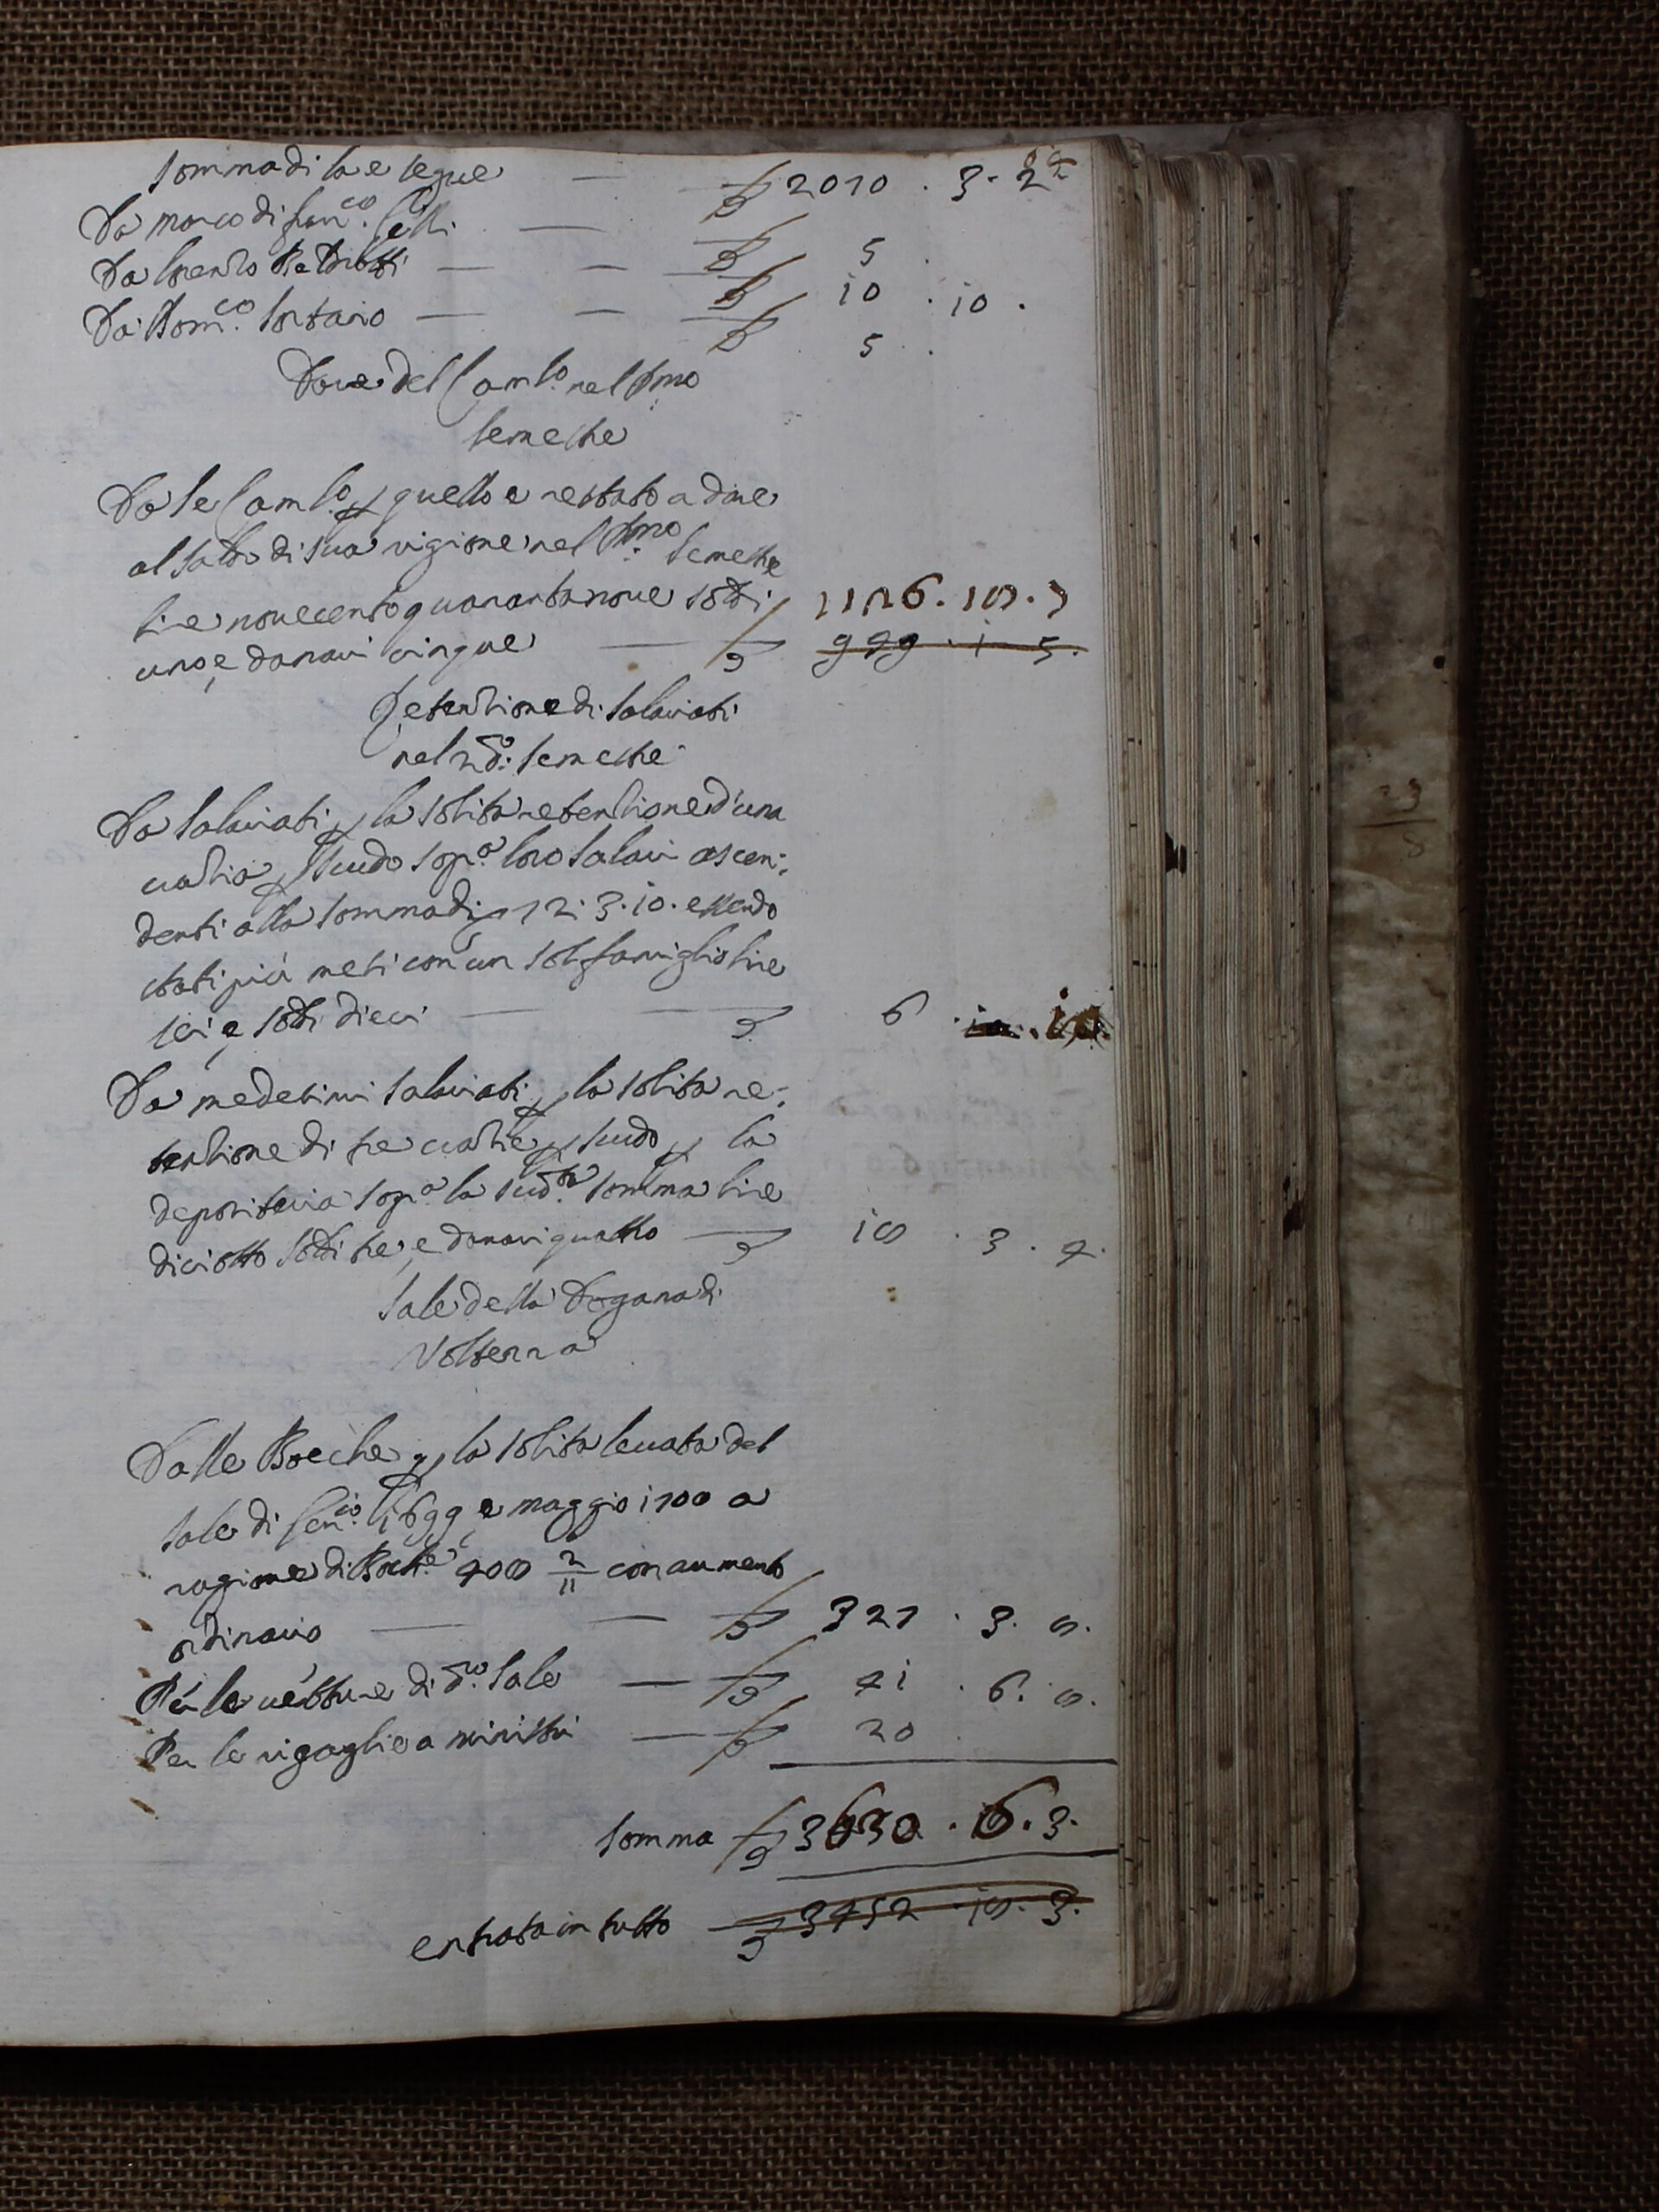 Somma di la e segue — £ 2010 . 3 . 2
Da Marco di Fran.co Celli — £ 5 .
Da Lorenzo — — £ 10 . 10 .
Da Dom.co Fontano — — £ 5 .
Dare del Caml.o nel Pmo
Semestre
Da Se Caml.o p quello e restato a dare
al saldo di sua ragione nel Pmo Semestre
lire novecento quarantanove soldi 1126 . 18 . 9
uno, e danari cinque — £ 949 . 1 5 .
Retentione di Salariati
nel 2do: Semestre
Da Salariati p la solita retentione d'una
crazia p scudo sop.a loro salari ascen:
denti alla somma di 12 . 3 . 10 . essendo
stati più mesi con un sol famiglio lire
sei, e soldi dieci — — 6 . 10 . 10
Da medesimi Salariati p la solita re:
tentione di tre crazie p scudo p la
depositeria sop.a la sud.ta somma lire
diciotto soldi tre, e danari quattro — 18 . 3 . 4 .
Sale della Dogana di
Volterra
Dalle Bocche p la solita levata del
sale di Gen.io 1699 e maggio 1700 a
ragione di Bocche 408 2/11 con aumento
ordinario — — £ 321 . 3 . 8 .
Per le vetture di d.o sale — £ 41 . 6 . 8 .
Per le rigaglie a ministri — £ 20 .
Somma £ 3630 . 6 . 3 .
entrata in tutto £ 3452 . 18 . 3 .